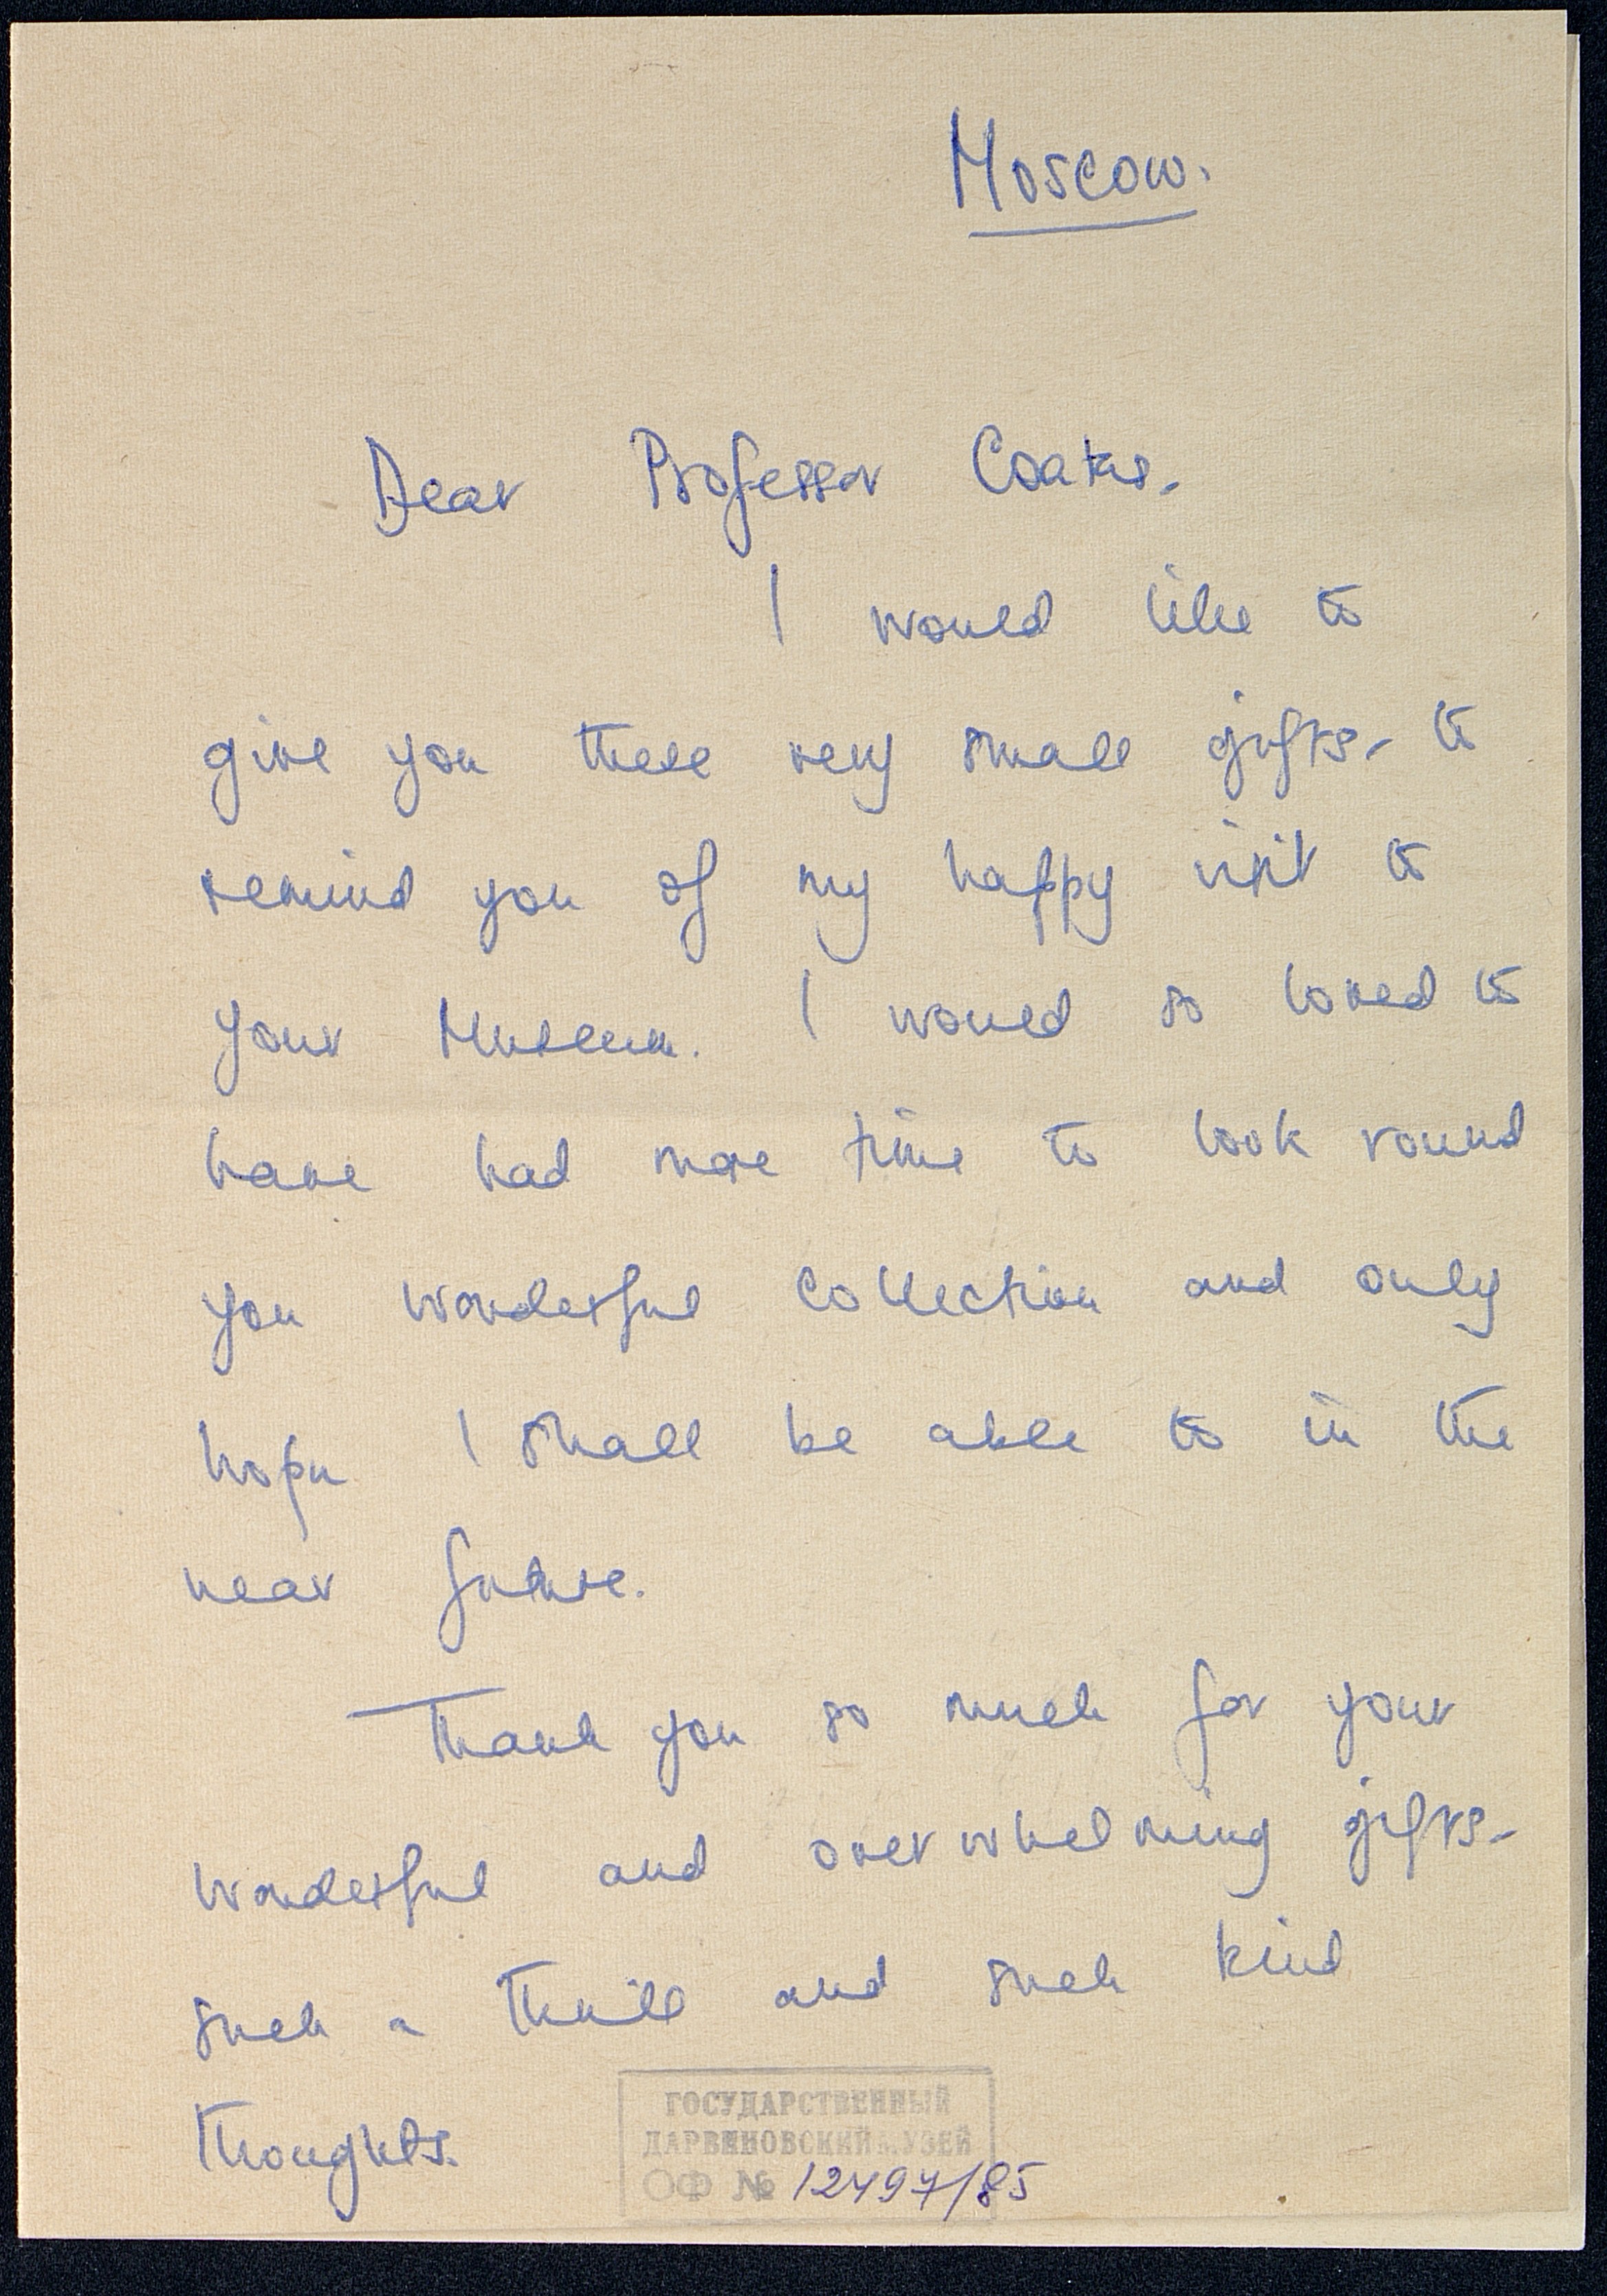 Moscow.
Dear Professor Coates.
I would like to
give you these very small gifts - to
remind you of my happy visit to
your Museum. I would so loved to
have had more time to look round
you wonderful collection and only
hope I shall be able to in the
near future.
Thank you so much for your
wonderful and overwhelming gifts -
such a thrill and such kind
thoughts.
ГОСУДАРСТВЕННЫЙ
ДАРВИНОВСКИЙ МУЗЕЙ
ОФ № 12497/85